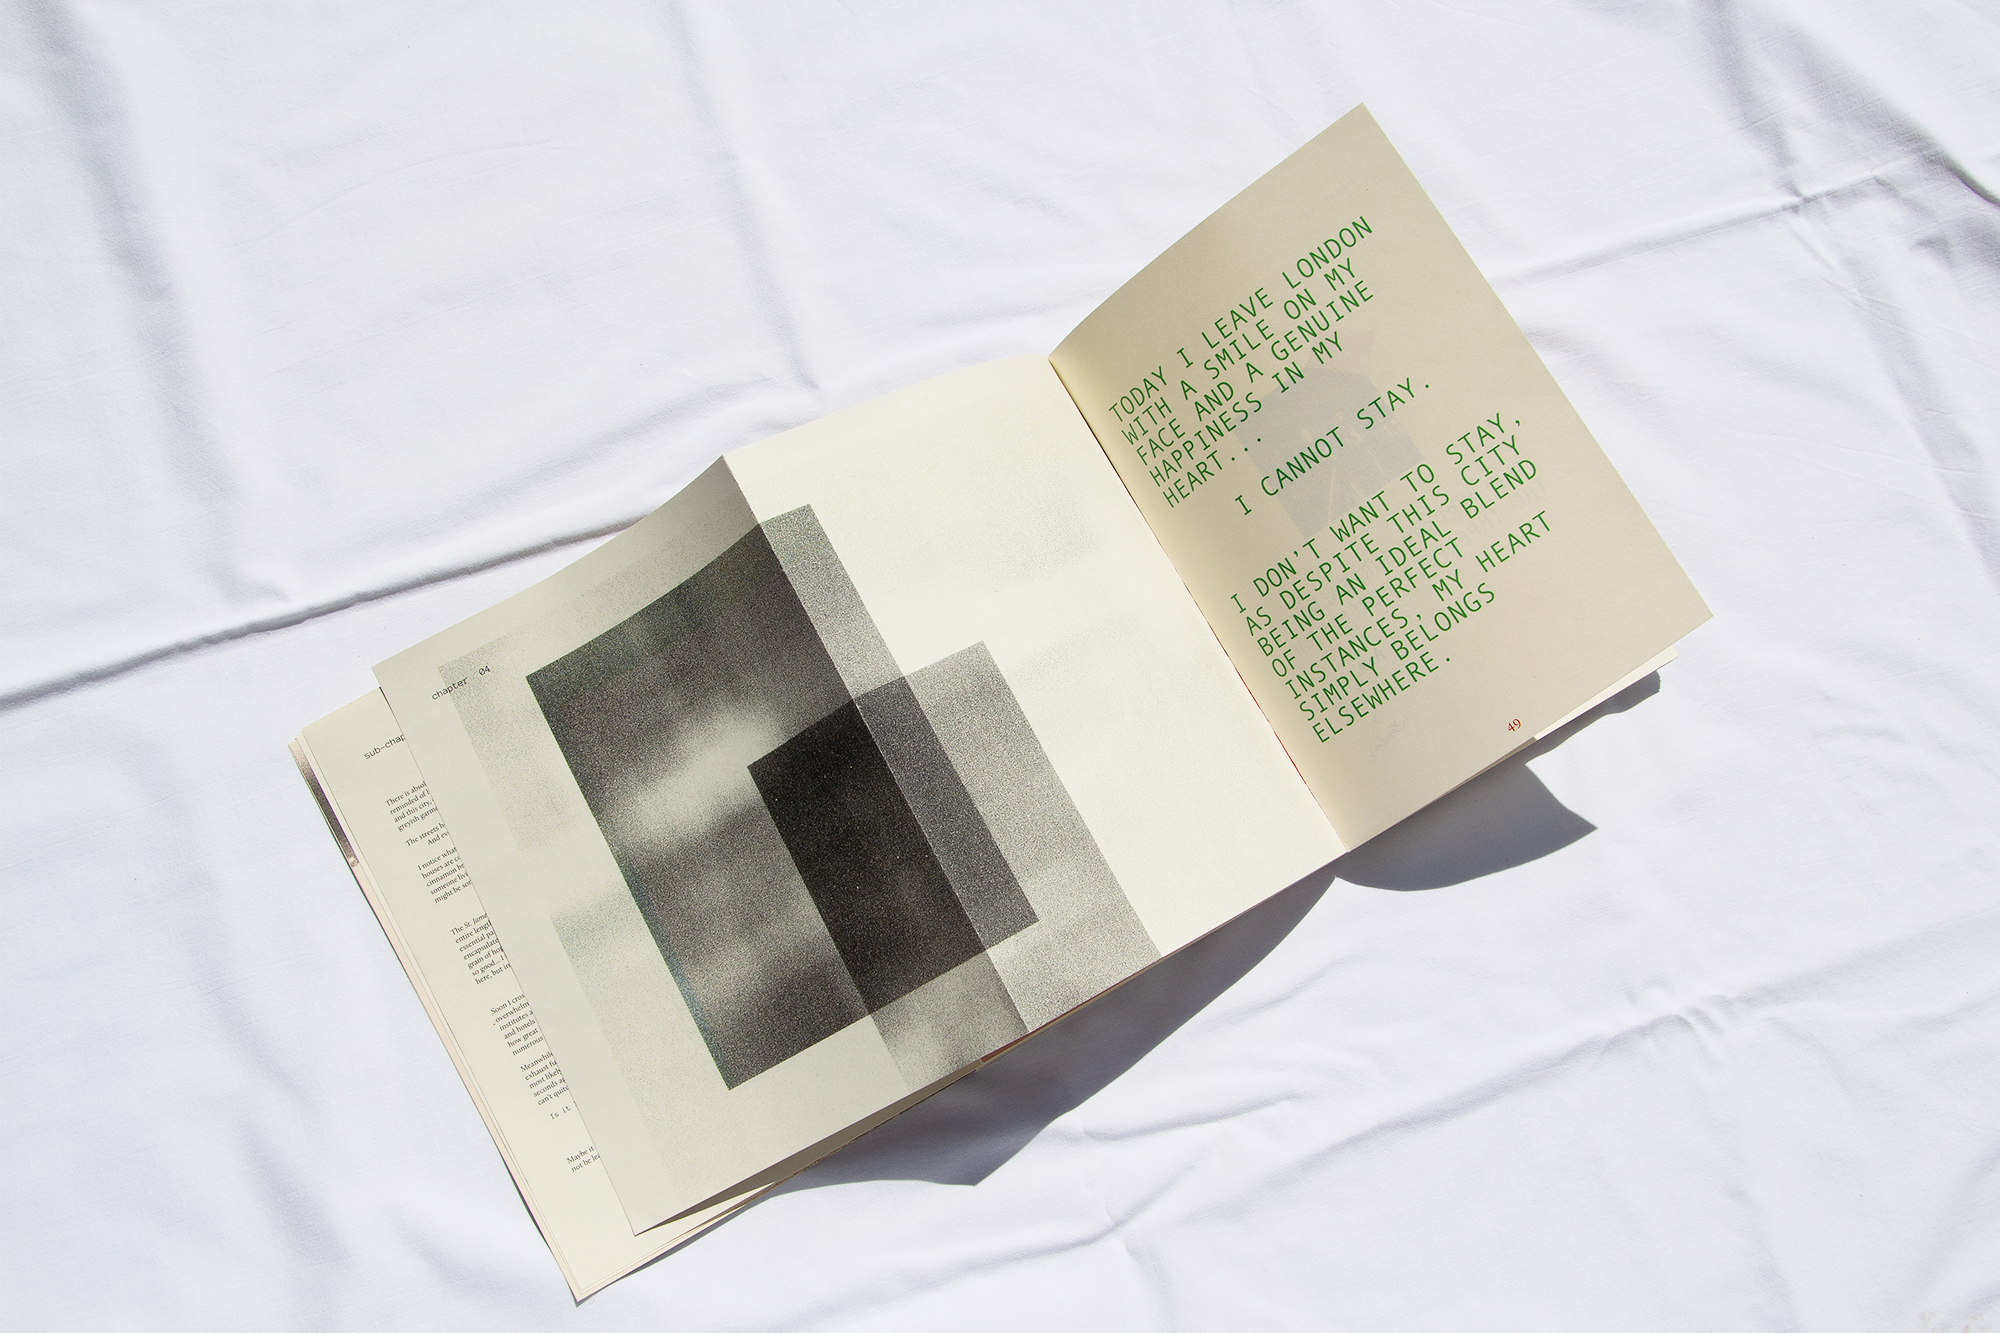 chapter 04
There is absol
reminded of
and this city,
greyish garm
The streets h
And ev
I notice what
houses are co
cinnamon
someone liv
might be
The St. Jame
entire length
essential pa
encapsulate
grain of
so good... I
here, but
Soon I cros
overwhelm
institutes a
and hotels
how great
numerous
Meanwhile
exhaust
most likely
seconds
can't quite
Is it
Maybe it
not be
TODAY I LEAVE LONDON
WITH A SMILE ON MY
FACE AND A GENUINE
HAPPINESS IN MY
HEART...
I CANNOT STAY.
I DON'T WANT TO STAY,
AS DESPITE THIS CITY
BEING AN IDEAL BLEND
OF THE PERFECT
INSTANCES, MY HEART
SIMPLY BELONGS
ELSEWHERE.
49